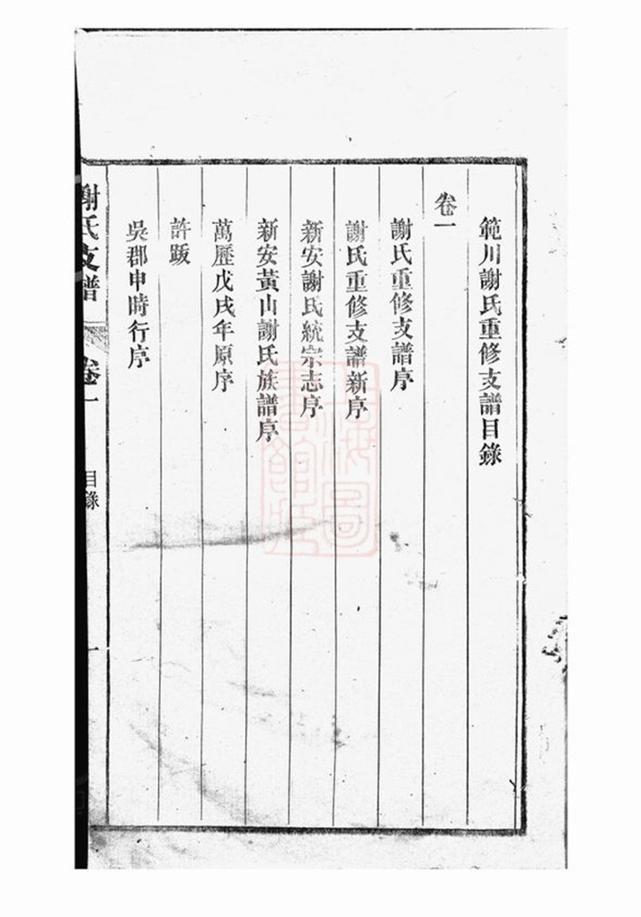 範川謝氏重修支譜目錄
卷一
謝氏重修支譜序
謝氏重修支譜新序
新安謝氏統宗志序
新安黃山謝氏族譜序
萬歷戊戌年原序
許跋
吳郡申時行序
謝氏支譜 卷一 目錄 一
上海圖書館藏